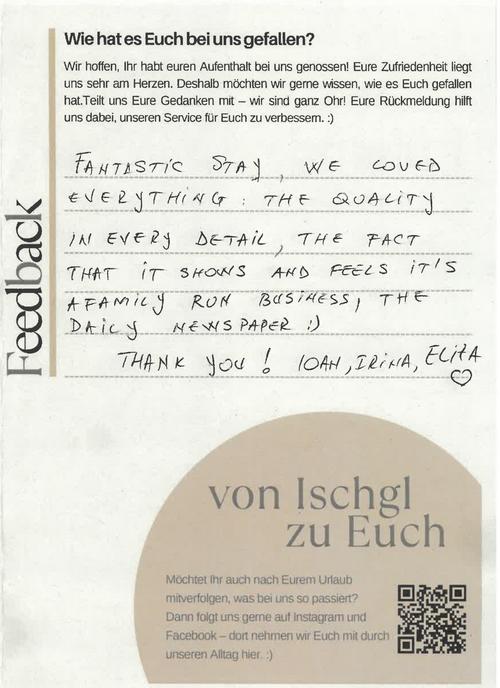 Wie hat es Euch bei uns gefallen?
Wir hoffen, Ihr habt euren Aufenthalt bei uns genossen! Eure Zufriedenheit liegt
uns sehr am Herzen. Deshalb möchten wir gerne wissen, wie es Euch gefallen
hat.Teilt uns Eure Gedanken mit – wir sind ganz Ohr! Eure Rückmeldung hilft
uns dabei, unseren Service für Euch zu verbessern. :)
Feedback
FANTASTIC STAY, WE LOVED
EVERYTHING: THE QUALITY
IN EVERY DETAIL, THE FACT
THAT IT SHOWS AND FEELS IT'S
A FAMILY RUN BUSINESS, THE
DAILY NEWSPAPER :)
THANK YOU! IOAN, IRINA, ELIZA
♡
von Ischgl
zu Euch
Möchtet Ihr auch nach Eurem Urlaub
mitverfolgen, was bei uns so passiert?
Dann folgt uns gerne auf Instagram und
Facebook – dort nehmen wir Euch mit durch
unseren Alltag hier. :)